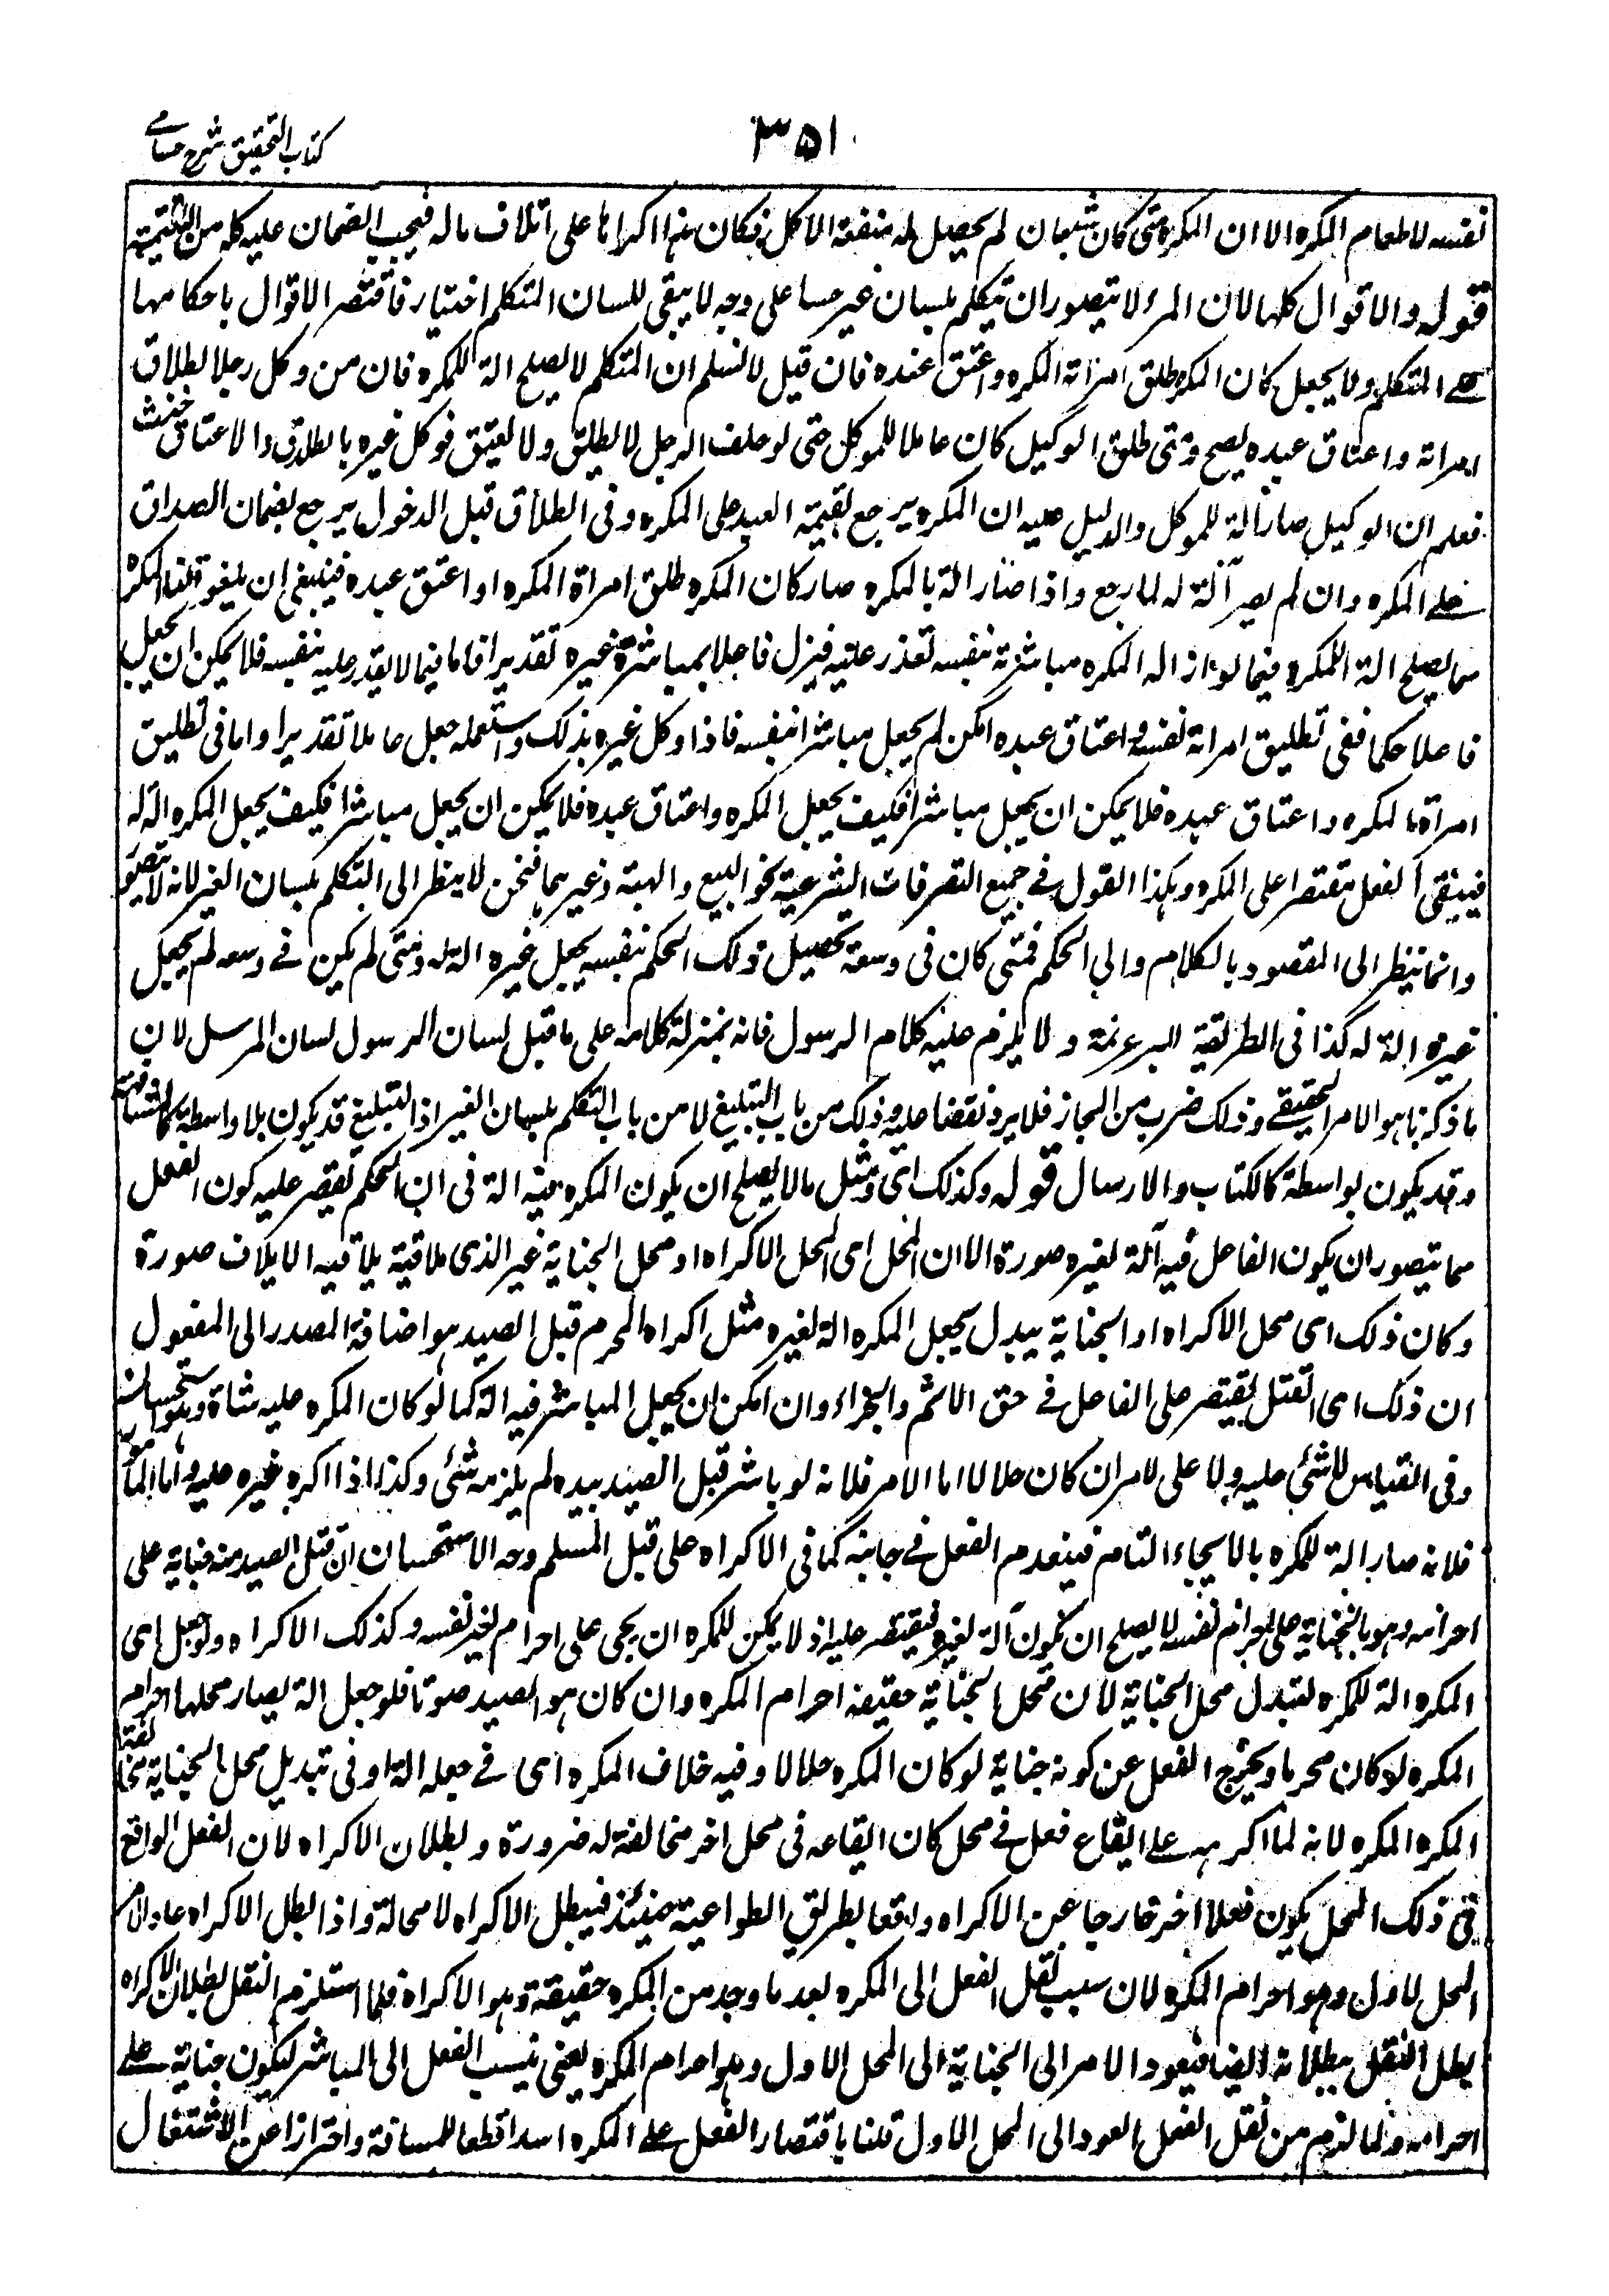 كتاب التحقيق شرح حسامي
٣٥١
نفسه لاطعام المكره الا ان المكره متى كان شبعان لم يحصل له منفعة الاكل فكان هذا اكراها على اتلاف ماله فيجب الضمان عليه كله من القيمية
قوله والاقوال كلها لان المرء لا يتصور ان يتكلم بلسان غير حسا على وجه لا يبقى للسان المتكلم اختيار فاقتصر الاقوال باحكامها
على المتكلم ولا يجعل كان المكره طلق امراته المكره واعتق عنده فان قيل لا نسلم ان المتكلم لا يصلح الة للمكره فان من وكل رجلا بطلاق
امراته واعتاق عبده يصح ومتى طلق الوكيل كان عاملا للموكل حتى لو حلف الرجل لا يطلق ولا يعتق فوكل غيره بالطلاق والاعتاق حنث
فعلم ان الوكيل صار آلة للموكل والدليل عليه ان المكره يرجع بقيمة العبد على المكره وفى الطلاق قبل الدخول يرجع بضمان الصداق
على المكره وان لم يصر آلة له لما رجع واذا صار الة بالمكره صار كان المكره طلق امراة المكره او اعتق عبده فينبغى ان يلغو قلنا المكره
مما يصلح الة للمكره فيما لو اراد المكره مباشرته بنفسه تعذر عليه فينزل فاعلا بمباشرة غيره تقديرا فاما فيما لا يقدر عليه بنفسه فلا يمكن ان يجعل
فاعلا حكما ففى تطليق امراته نفسه واعتاق عبده امكن لم يجعل مباشرا بنفسه فاذا وكل غيره بذلك واستعمله جعل عاملا تقديرا واما فى تطليق
امراة المكره واعتاق عبده فلا يمكن ان يجعل مباشرا فكيف يجعل المكره واعتاق عبده فلا يمكن ان يجعل مباشرا فكيف يجعل المكره الة له
فيبقى الفعل مقتصرا على المكره وبهذا القول فى جميع التصرفات الشرعية نحو البيع والهبة وغيرهما فنحن لا ينظر الى التكلم بلسان الغير لانه لا يتصور
وانما ننظر الى المقصود بالكلام والى الحكم فمتى كان فى وسعة تحصيل ذلك الحكم بنفسه يجعل غيره الة له ومتى لم يكن فى وسعه لم يجعل
غيره الة له كذا فى الطريقة البرغرية ولا يلزم عليه كلام الرسول فانه بمنزلة كلامه على ما قيل لسان الرسول لسان المرسل لان
ما ذكرنا هو الامر الحقيقى وذلك ضرب من المجاز فلا يرد نقضا عليه وذلك من باب التبليغ لا من باب التكلم بلسان الغير اذ التبليغ قد يكون بلا واسطة كالمشافهة
وقد يكون بواسطة كالكتاب والارسال قوله وكذلك اى ومثل ما لا يصلح ان يكون المكره فيه الة فى ان الحكم يقصر عليه كون الفعل
مما يتصور ان يكون الفاعل فيه آلة لغيره صورة الا ان المحل اى المحل الاكراه او محل الجناية غير الذى ملاقية يلاقيه الاتلاف صورة
وكان ذلك اى محل الاكراه او الجناية يبدل يجعل المكره الة لغيره مثل اكراه المحرم قتل الصيد هو اضافة المصدر الى المفعول
ان ذلك اى القتل يقتصر على الفاعل فى حق الاثم والجزاء وان امكن ان يجعل المباشر فيه الة كما لو كان المكره عليه شاة وهو استحسان
وفى القياس لا شئ عليه ولا على الامر ان كان حلالا اما الامر فلانه لو باشر قتل الصيد بيده لم يلزمه شئ وكذا اذا اكره غيره عليه واما المامور
فلانه صار الة للمكره بالالجاء التام فينعدم الفعل فى جانبه كما فى الاكراه على قتل المسلم وجه الاستحسان ان قتل الصيد منه جناية على
احرامه وهو بالجناية على احرام نفسه لا يصلح ان يكون آلة لغيره فيقتصر عليه اذ لا يمكن للمكره ان يجى على احرام لغير نفسه وكذلك الاكراه ولو جعل اى
المكره الة للمكره لتبدل محل الجناية لان محل الجناية حقيقة احرام المكره وان كان هو الصيد صوتا فلو جعل الة يصار محلها احرام
المكره لو كان محرما ويخرج الفعل عن كونه جناية لو كان المكره حلالا وفيه خلاف المكره اى فى جعله الة او فى تبديل محل الجناية مخالفة
المكره المكره لانه لما اكرهه على ايقاع فعل فى محل كان ايقاعه فى محل اخر مخالفة له ضرورة وبطلان الاكراه لان الفعل الواقع
فى ذلك المحل يكون فعلا اخر خارجا عن الاكراه واقعا بطريق الطواعية حينئذ فيبطل الاكراه لا محالة واذا بطل الاكراه عاد الامر
المحل الاول وهو احرام المكره لان سبب نقل الفعل الى المكره بعد ما وجد من المكره حقيقة وهو الاكراه فلما استلزم النقل بطلان الاكراه
بطل النقل ببطلانه ايضا فيعود الامر الى الجناية الى المحل الاول وهو احرام المكره يعنى ينسب الفعل الى المباشر ليكون جناية على
احرامه ولما لزم من نقل الفعل العود الى المحل الاول قلنا باقتصار الفعل على المكره اسدا قطعا للمسافة واحترازا عن الاشتغال